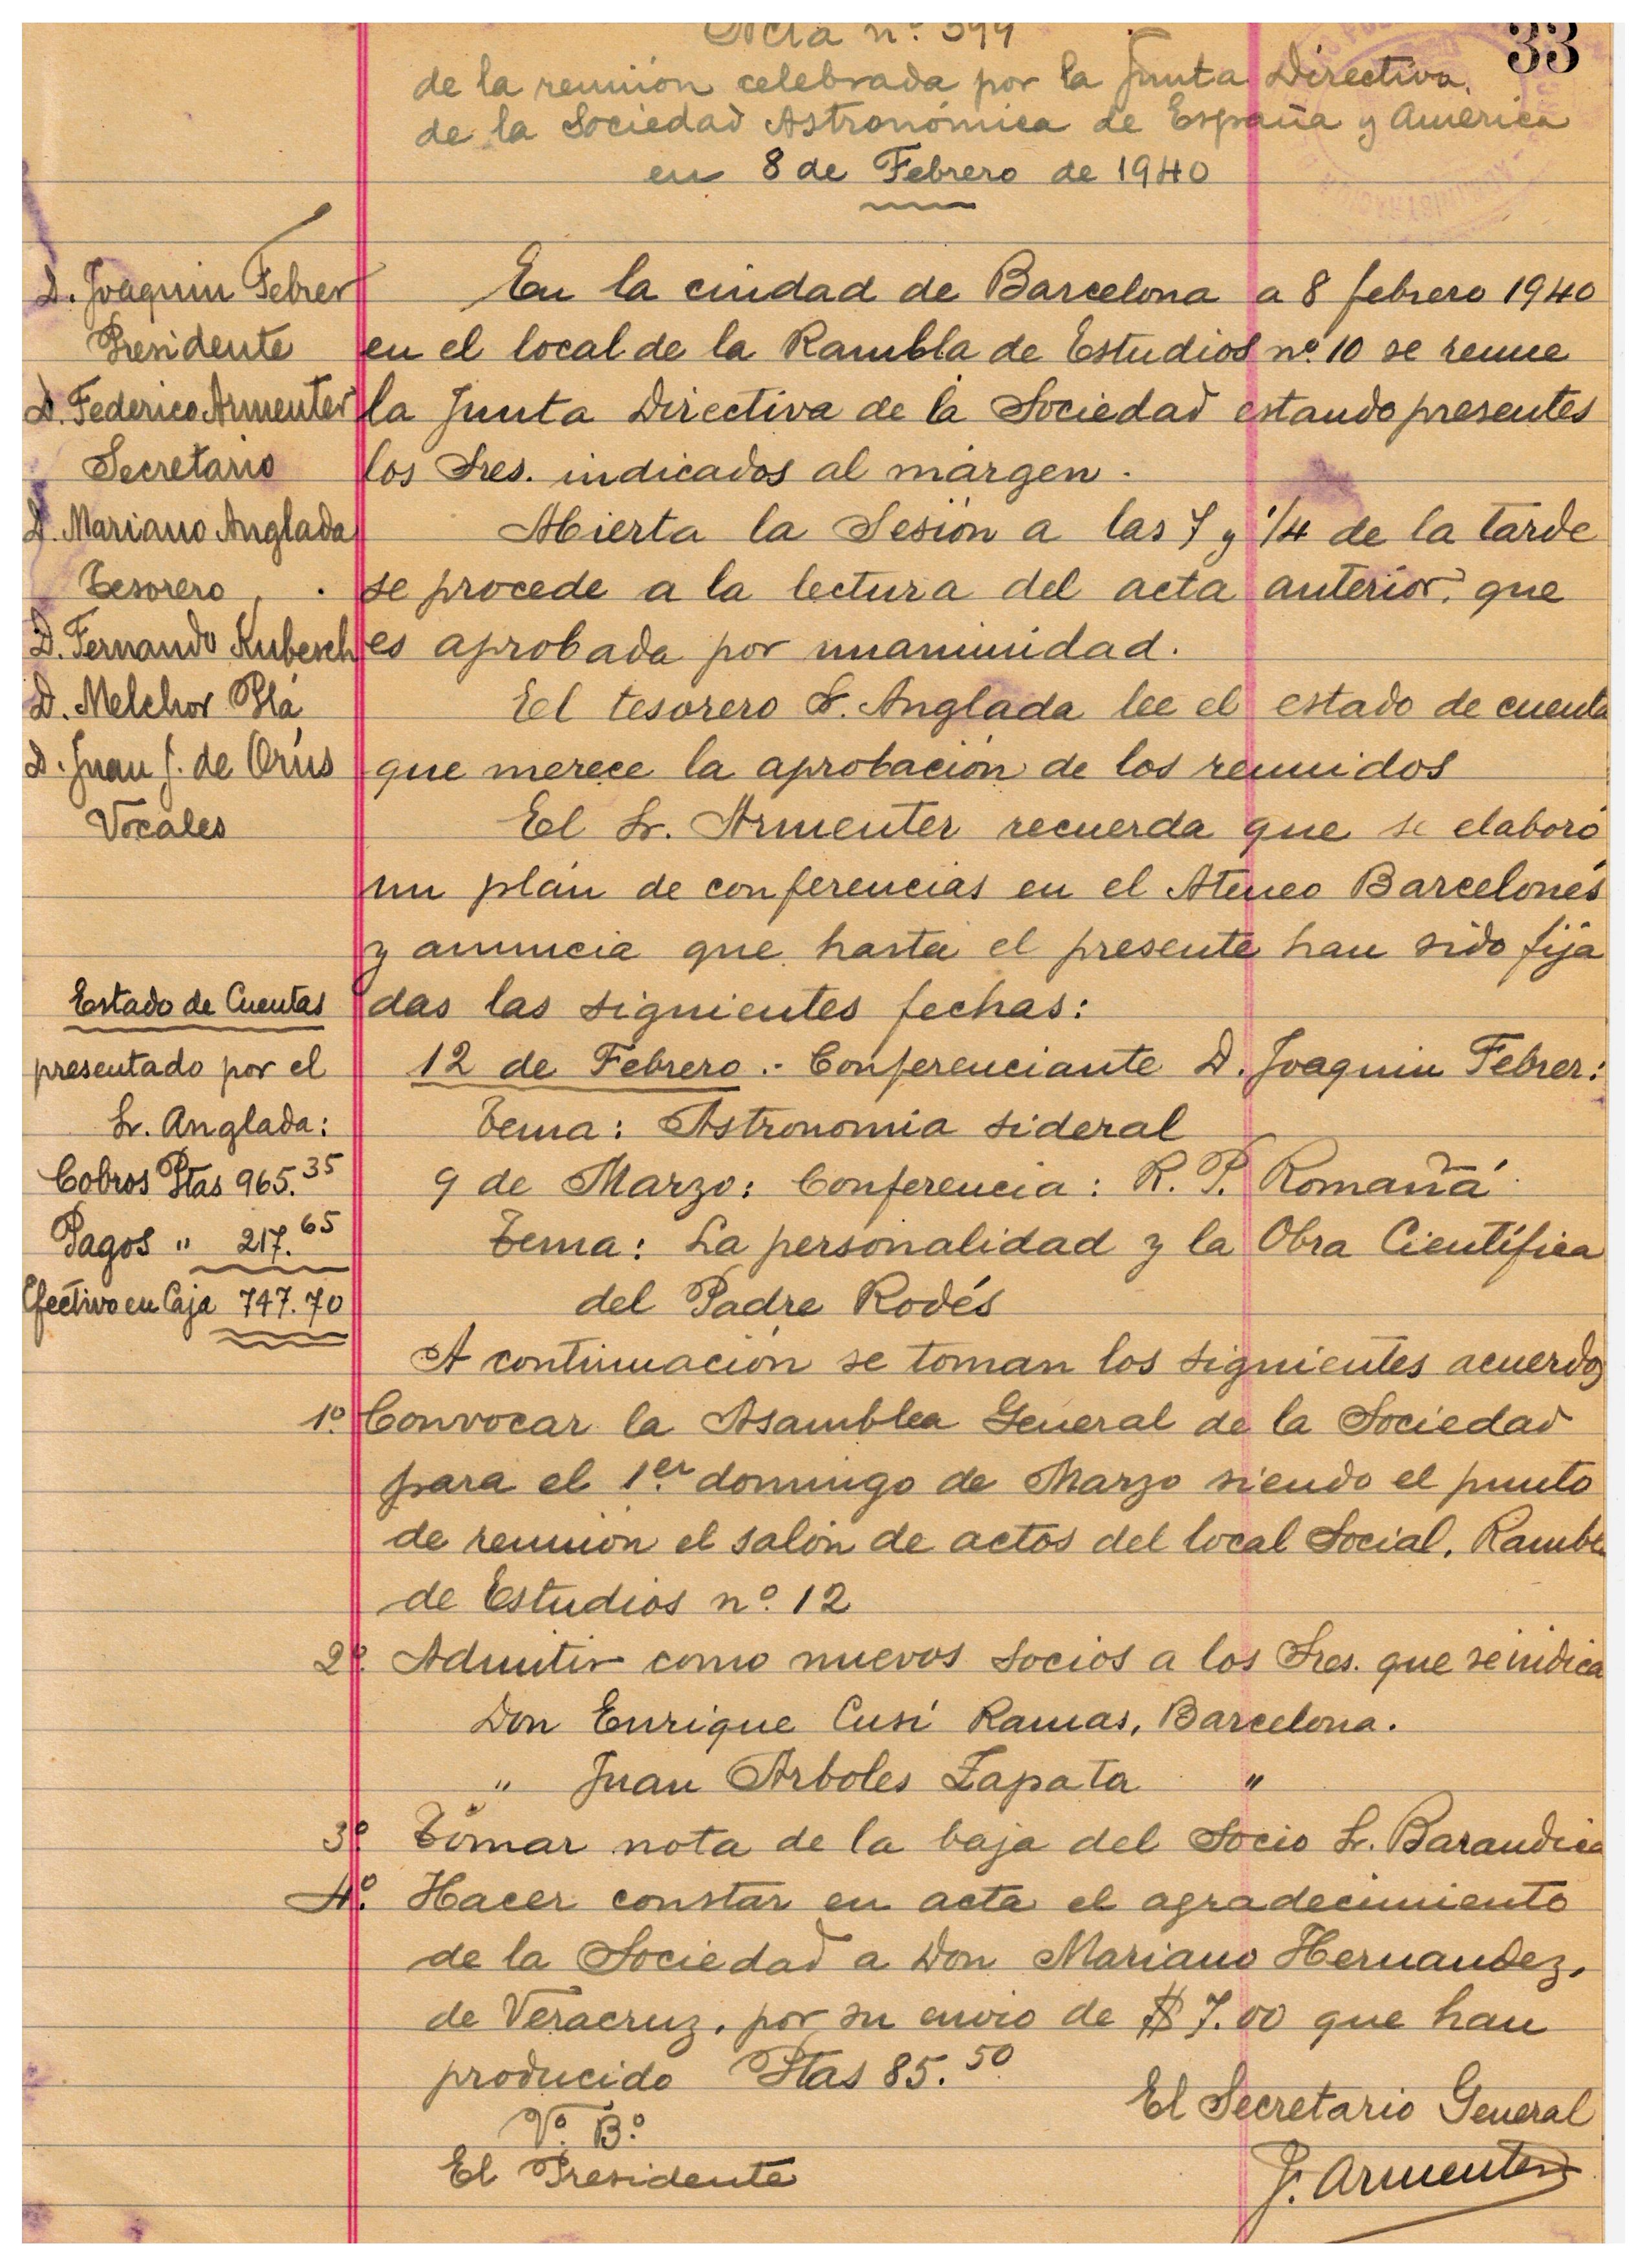 33
Acta nº. 399
de la reunión celebrada por la Junta Directiva.
de la Sociedad Astronómica de España y America
en 8 de Febrero de 1940
D. Joaquin Febrer
Presidente
D. Federico Armenter
Secretario
D. Mariano Anglada
Tesorero
D. Fernando Kubesch
D. Melchor Plá
D. Juan J. de Orús
Vocales
En la ciudad de Barcelona a 8 febrero 1940
en el local de la Rambla de Estudios nº. 10 se reune
la Junta Directiva de la Sociedad estando presentes
los Sres. indicados al márgen.
Abierta la Sesión a las 7 y 1/4 de la tarde
se procede a la lectura del acta anterior, que
es aprobada por unanimidad.
El tesorero Sr. Anglada lee el estado de cuenta
que merece la aprobación de los reunidos
El Sr. Armenter recuerda que se elaboró
un plán de conferencias en el Ateneo Barcelonés
y anuncia que hasta el presente han sido fija
das las siguientes fechas:
12 de Febrero.- Conferenciante D. Joaquin Febrer:
Tema: Astronomia sideral
9 de Marzo: Conferencia: R. P. Romañá.
Tema: La personalidad y la Obra Científica
del Padre Rodés
Estado de Cuentas
presentado por el
Sr. Anglada:
Cobros Ptas 965.35
Pagos " 217.65
Efectivo en Caja 747.70
A continuación se toman los siguientes acuerdos
1º. Convocar la Asamblea General de la Sociedad
para el 1er. domingo de Marzo siendo el punto
de reunión el salón de actos del local Social, Rambla
de Estudios nº. 12
2º. Admitir como nuevos socios a los Sres. que se indica
Don Enrique Cusí Ramas, Barcelona.
" Juan Arboles Zapata "
3º. Tomar nota de la baja del Socio Sr. Barandica
4º. Hacer constar en acta el agradecimiento
de la Sociedad a Don Mariano Hernandez,
de Veracruz, por su envio de $ 7.00 que han
producido Ptas 85.50
Vº. Bº.
El Presidente
El Secretario General
F. Armenter